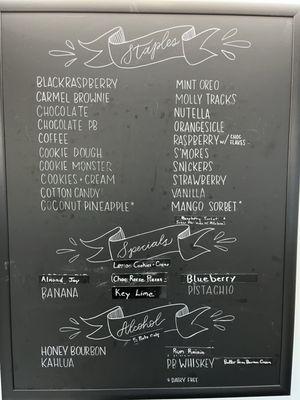 Staples
BLACKRASPBERRY
CARMEL BROWNIE
CHOCOLATE
CHOCOLATE PB
COFFEE
COOKIE DOUGH
COOKIE MONSTER
COOKIES + CREAM
COTTON CANDY
COCONUT PINEAPPLE*
MINT OREO
MOLLY TRACKS
NUTELLA
ORANGESICLE
RASPBERRY W/ CHOC FLAKES
S'MORES
SNICKERS
STRAWBERRY
VANILLA
MANGO SORBET*
Raspberry Sorbet *
Specials
Lemon Cookies + Cream
Almond Joy
Choc Reese Pieces
Blueberry
BANANA
Key Lime
PISTACHIO
Alcohol
HONEY BOURBON
Rum Raisin
KAHLUA
PB WHISKEY
* DAIRY FREE